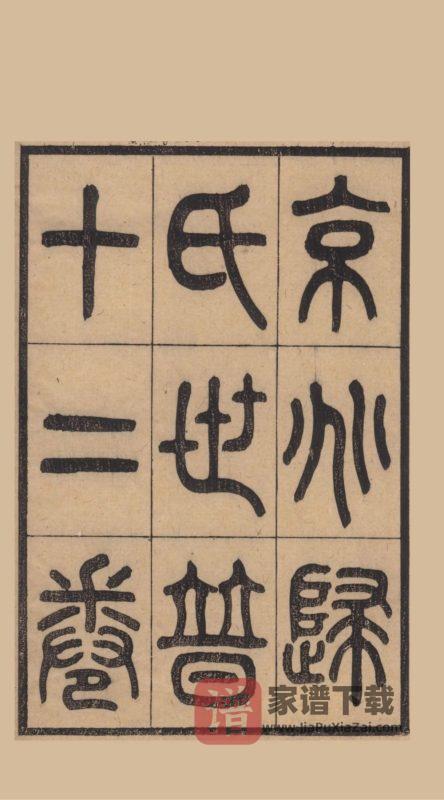 京兆歸
氏世普
十二卷
谱 家谱下载
www.JiaPuXiaZai.com